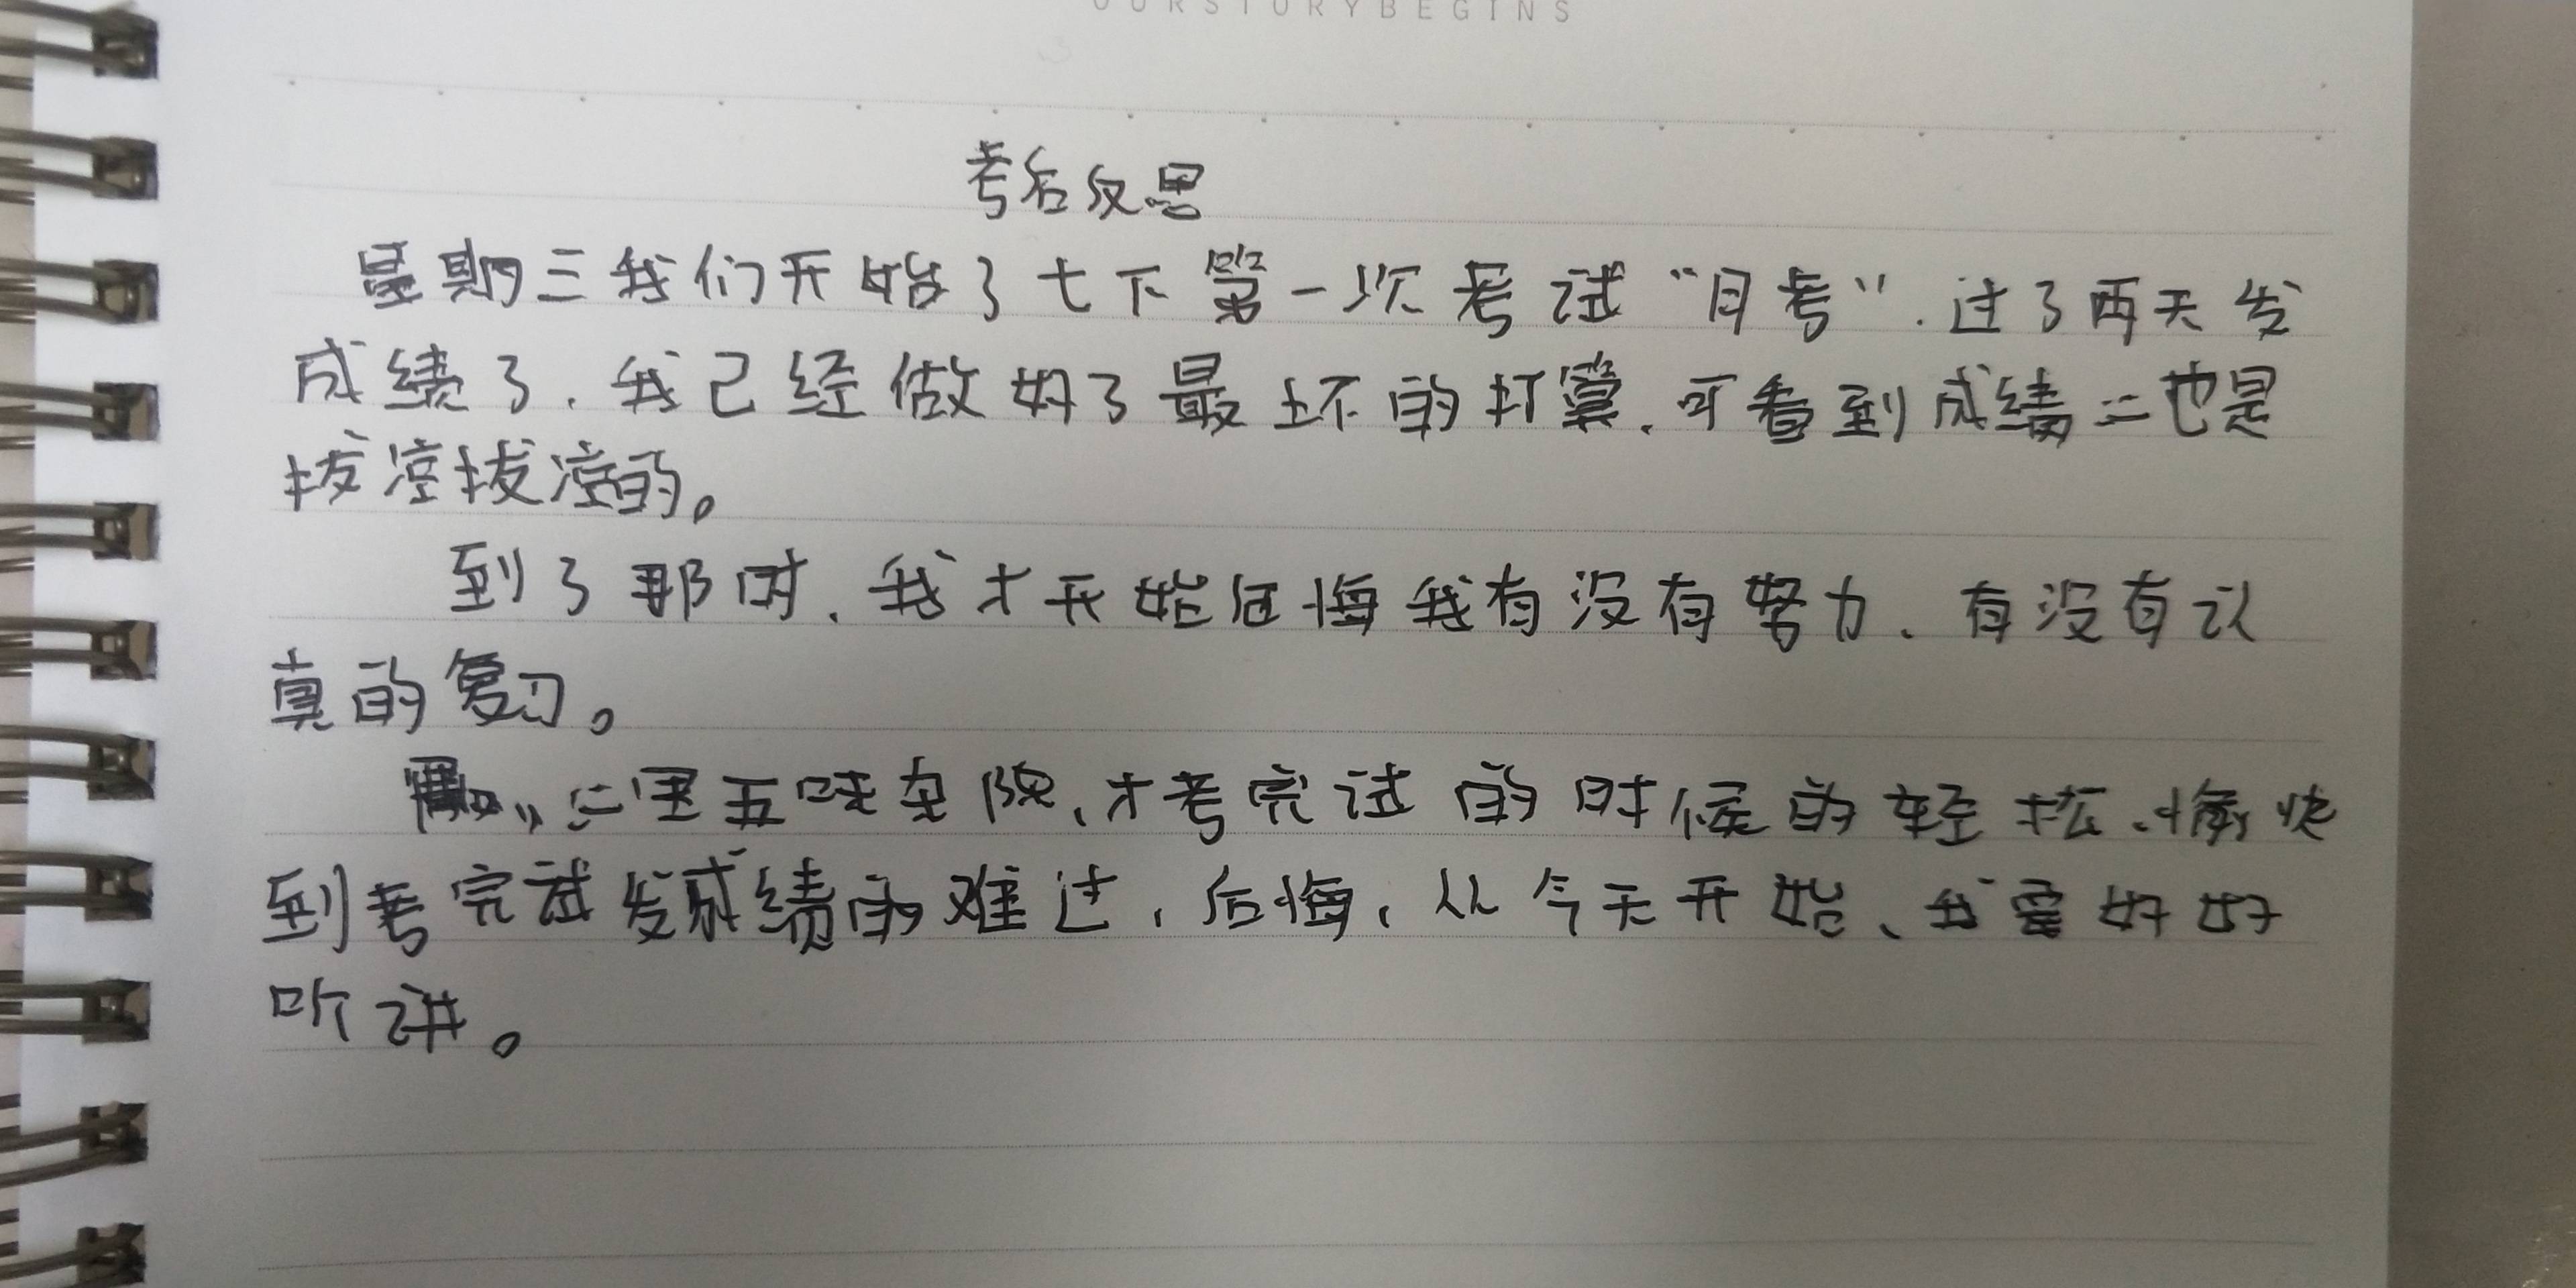 OURSTORYBEGINS
考后反思
星期三我们开始了七下第一次考试“月考”.过了两天发
成绩了.我已经做好了最坏的打算.可看到成绩心也是
拔凉拔凉的。
到了那时.我才开始后悔我有没有努力.有没有认
真的复习。
心里五味杂陈、才考完试的时候的轻松.愉快
到考完试发成绩的难过,后悔,从今天开始、我要好好
听讲。